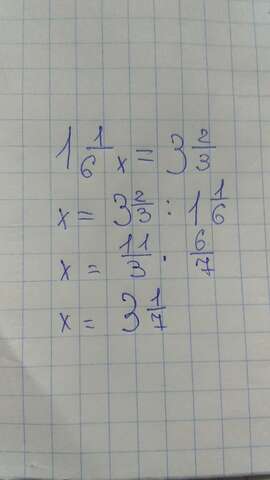 1 1/6 x = 3 2/3
x = 3 2/3 : 1 1/6
x = 11/3 · 6/7
x = 3 1/7